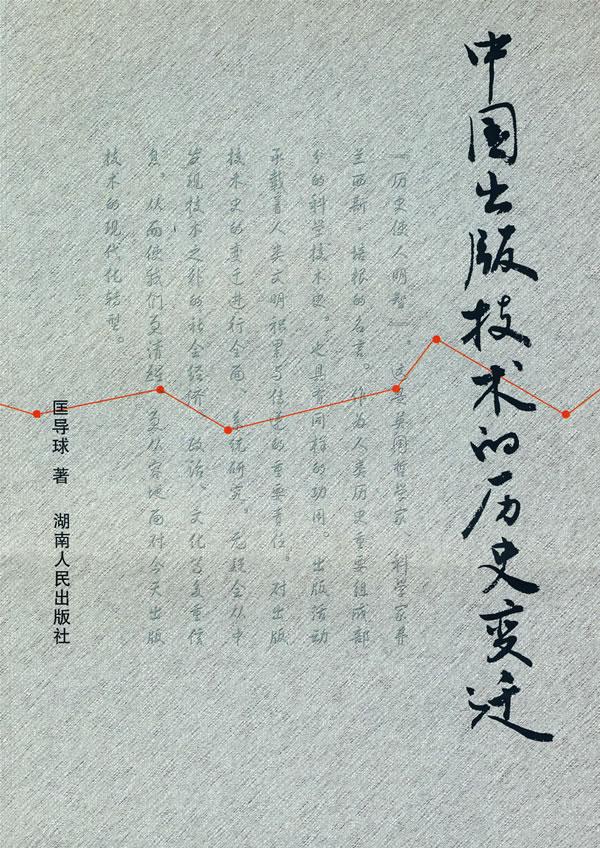 中国出版技术的历史变迁
『历史使人明智』。这是英国哲学家、科学家弗
兰西斯·培根的名言。作为人类历史重要组成部
分的科学技术史。也具有同样的功用。出版活动
承载着人类文明积累与传递的重要责任。对出版
技术史的变迁进行全面、系统研究。无疑会从中
发现技术之外的社会经济、政治、文化等多重信
息。从而使我们更清醒、更从容地面对今天出版
技术的现代化转型。
匡导球 著 湖南人民出版社